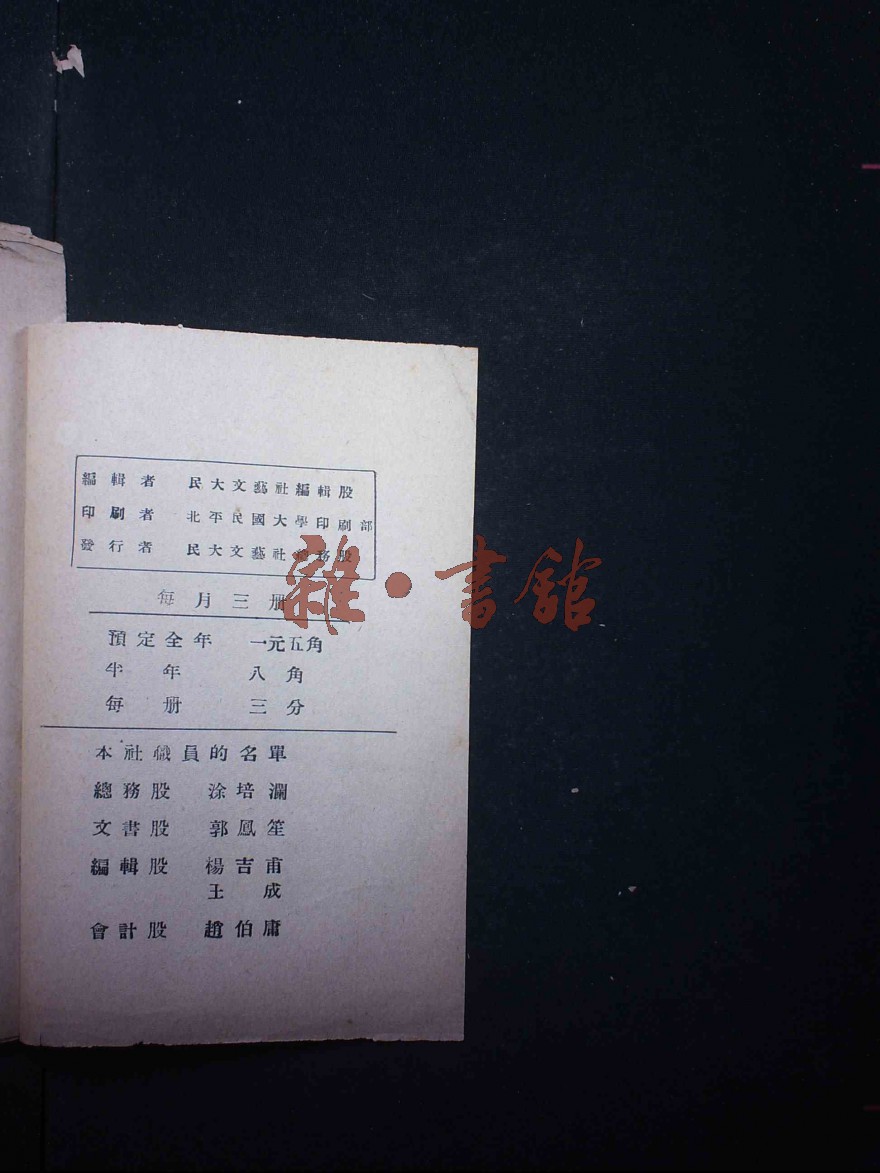 編輯者 民大文藝社編輯股
印刷者 北平民國大學印刷部
發行者 民大文藝社總務股
雜·書舘
每月三册
預定全年 一元五角
半年 八角
每册 三分
本社職員的名單
總務股 涂培瀾
文書股 郭鳳笙
編輯股 楊吉甫
王成
會計股 趙伯庸